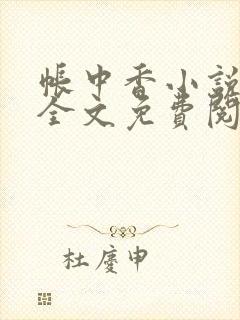 帳中香小說
全文免費閱
杜慶申